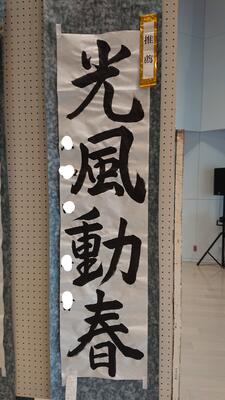 光風動春
推薦